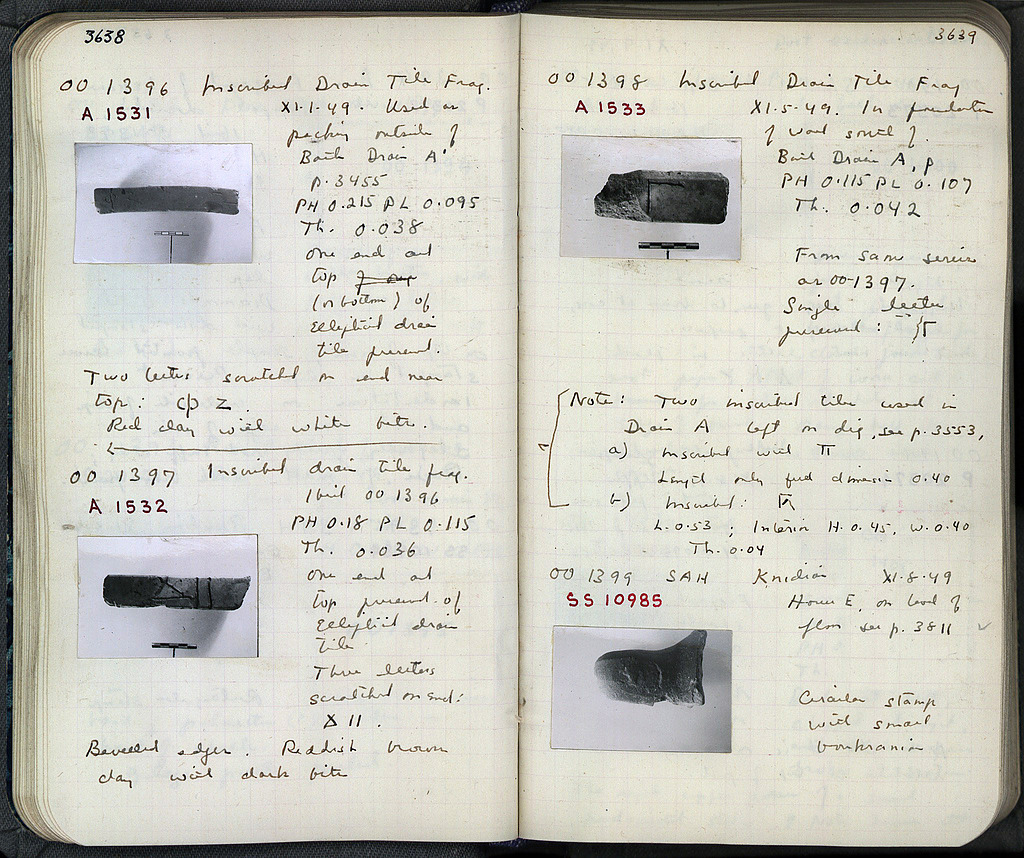 3638
OO 1396 Inscribed Drain Tile Frag.
A 1531 XI-1-49 Used as
packing outside of
Bath Drain A'
p. 3455
PH 0.215 PL 0.095
Th. 0.038
One end and
top
(or bottom) of
Elliptical drain
tile present.
Two letters scratched on end near
top: Z.
Red clay with white bits.
OO 1397 Inscribed drain tile frag.
A 1532 Ibid OO 1396
PH 0.18 PL 0.115
Th. 0.036
One end and
top present of
Elliptical drain
tile.
Three letters
scratched on end:
X 11.
Bevelled edges. Reddish brown
clay with dark bits
3639
OO 1398 Inscribed Drain Tile Frag
A 1533 XI-5-49. In foundation
of wall south of
Bath Drain A, p
PH 0.115 PL 0.107
Th. 0.042
From same series
as OO-1397.
Single letter
preserved: Γ
Note: Two inscribed tiles used in
Drain A left on dig, see p. 3553,
a) Inscribed with Π
Length only dimension 0.40
b) Inscribed:
L. 0.53; Interior H. 0.45, W. 0.40
Th. 0.04
OO 1399 SAH Knidian XI-8-49
SS 10985 House E, on level of
floor see p. 3811
Circular stamp
with small
boukranion